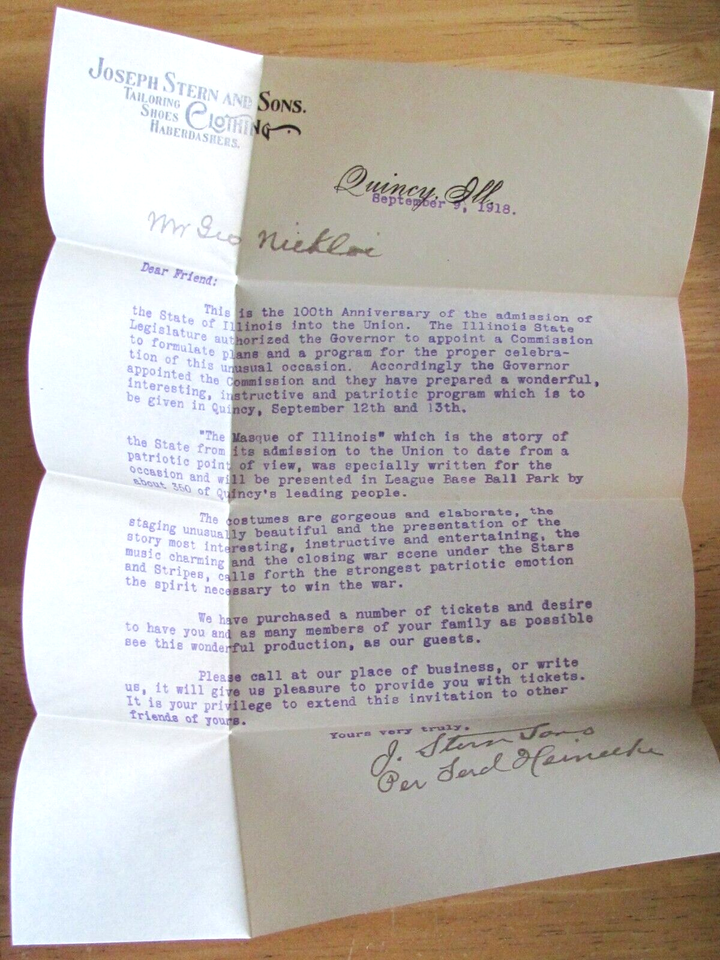 JOSEPH STERN AND SONS.
TAILORING
SHOES CLOTHING
HABERDASHERS.
Quincy, Ill.
September 9, 1918.
Mr Geo
Dear Friend:
This is the 100th Anniversary of the admission of
the State of Illinois into the Union. The Illinois State
Legislature authorized the Governor to appoint a Commission
to formulate plans and a program for the proper celebra-
tion of this unusual occasion. Accordingly the Governor
appointed the Commission and they have prepared a wonderful,
interesting, instructive and patriotic program which is to
be given in Quincy, September 12th and 13th.
"The Masque of Illinois" which is the story of
the State from its admission to the Union to date from a
patriotic point of view, was specially written for the
occasion and will be presented in League Base Ball Park by
about 350 of Quincy's leading people.
The costumes are gorgeous and elaborate, the
staging unusually beautiful and the presentation of the
story most interesting, instructive and entertaining, the
music charming and the closing war scene under the Stars
and Stripes, calls forth the strongest patriotic emotion
the spirit necessary to win the war.
We have purchased a number of tickets and desire
to have you and as many members of your family as possible
see this wonderful production, as our guests.
Please call at our place of business, or write
us, it will give us pleasure to provide you with tickets.
It is your privilege to extend this invitation to other
friends of yours.
Yours very truly,
J. Stern Sons
Per Ferd Heinecke